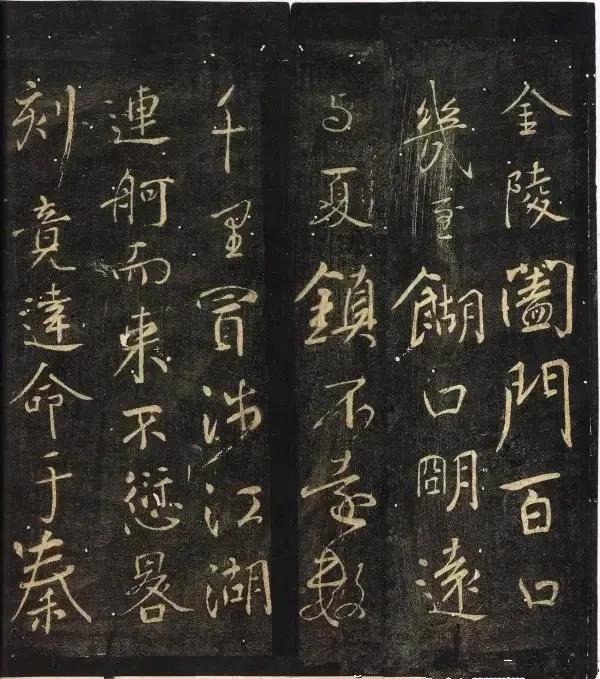 金陵闔門百口
幾至餬口朙遠
与夏鎮不遠數
千里冒涉江湖
連舸而来不愆晷
刻竟達命于秦